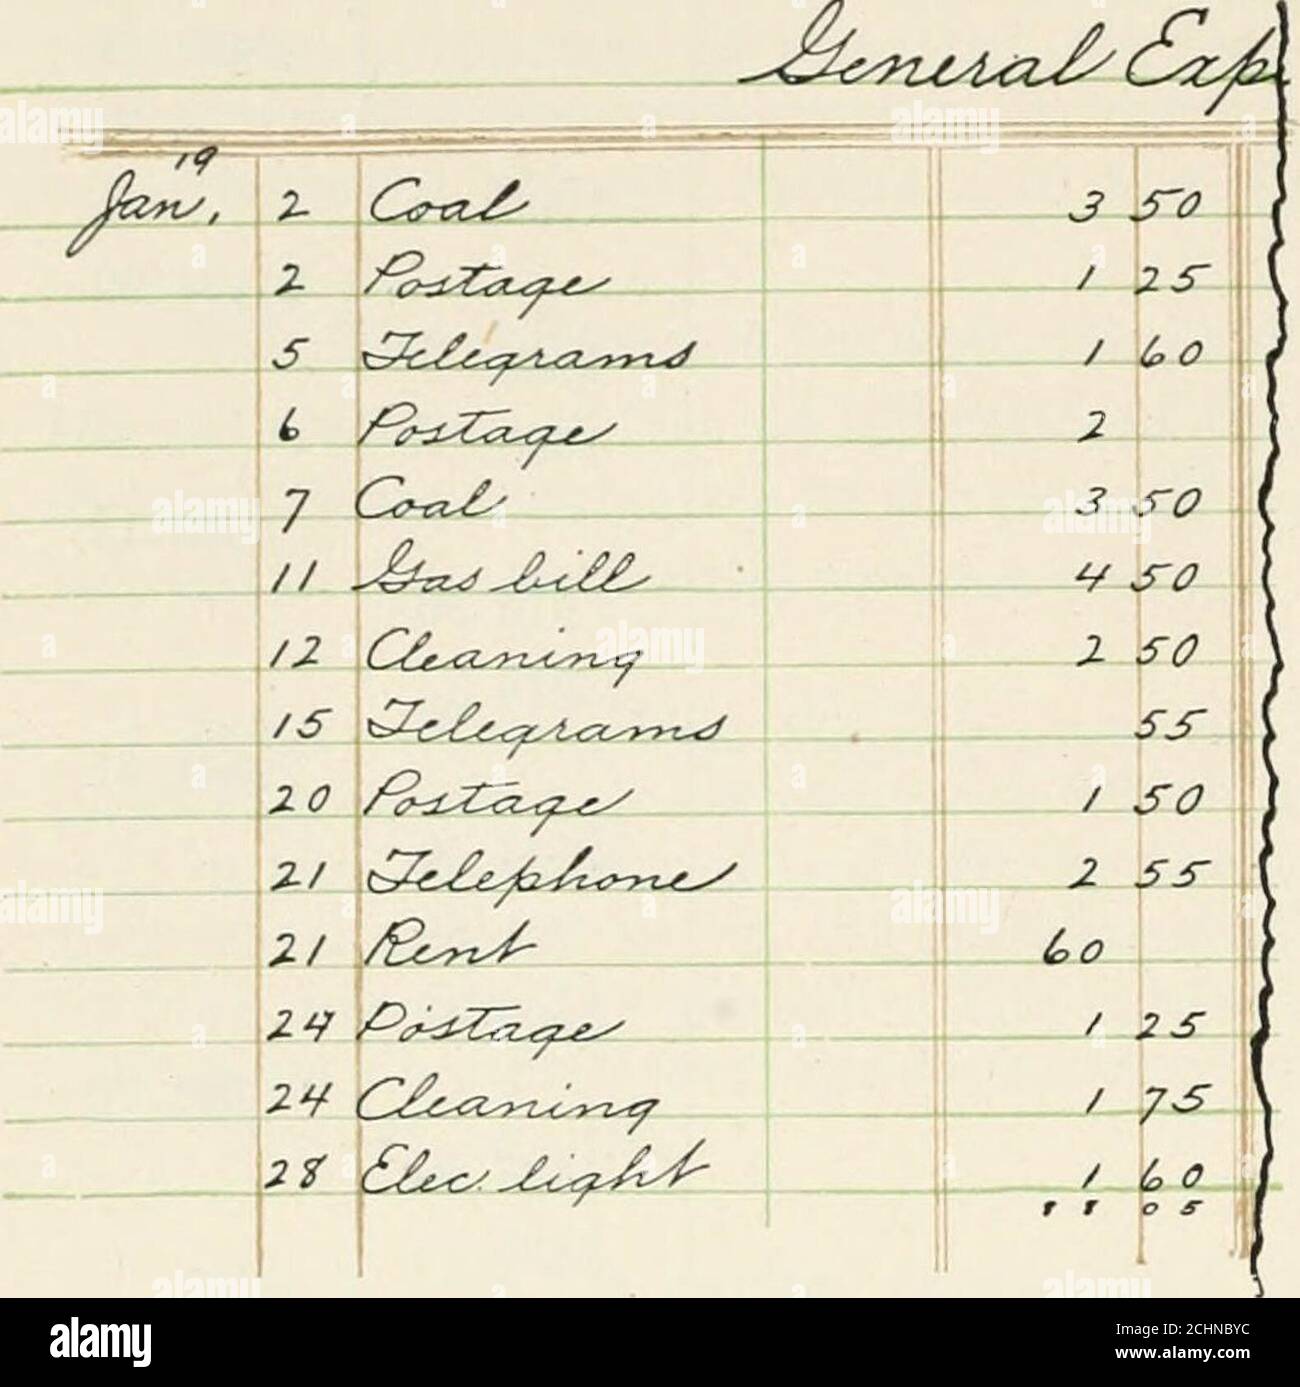 General Exp
19
Jan, 2 Coal 3 50
2 Postage 1 25
5 Telegrams 1 60
6 Postage 2
7 Coal 3 50
11 Gas bill 4 50
12 Cleaning 2 50
15 Telegrams 55
20 Postage 1 50
21 Telephone 2 55
21 Rent 60
24 Postage 1 25
24 Cleaning 1 75
28 Elec. light 1 60
88 05
alamy
Image ID: 2CHNBYC
www.alamy.com